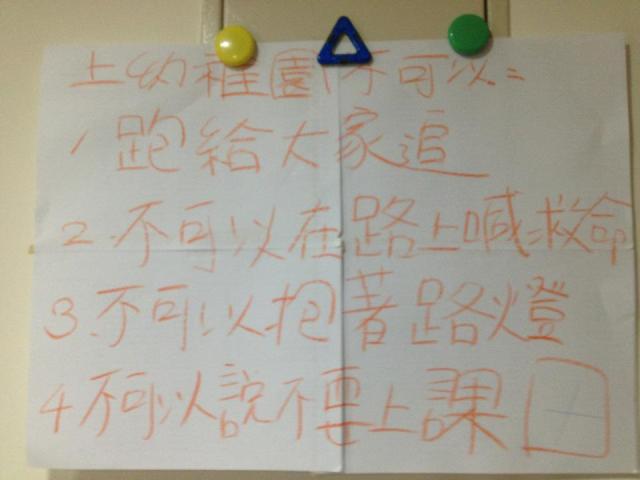 上幼稚園不可以：
1 跑給大家追
2.不可以在路上喊救命
3.不可以抱著路燈
4不可以說不要上課